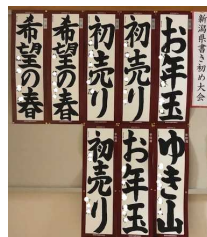 新潟県書き初め大会
お年玉
初売り
初売り
希望の春
希望の春
ゆき山
お年玉
初売り